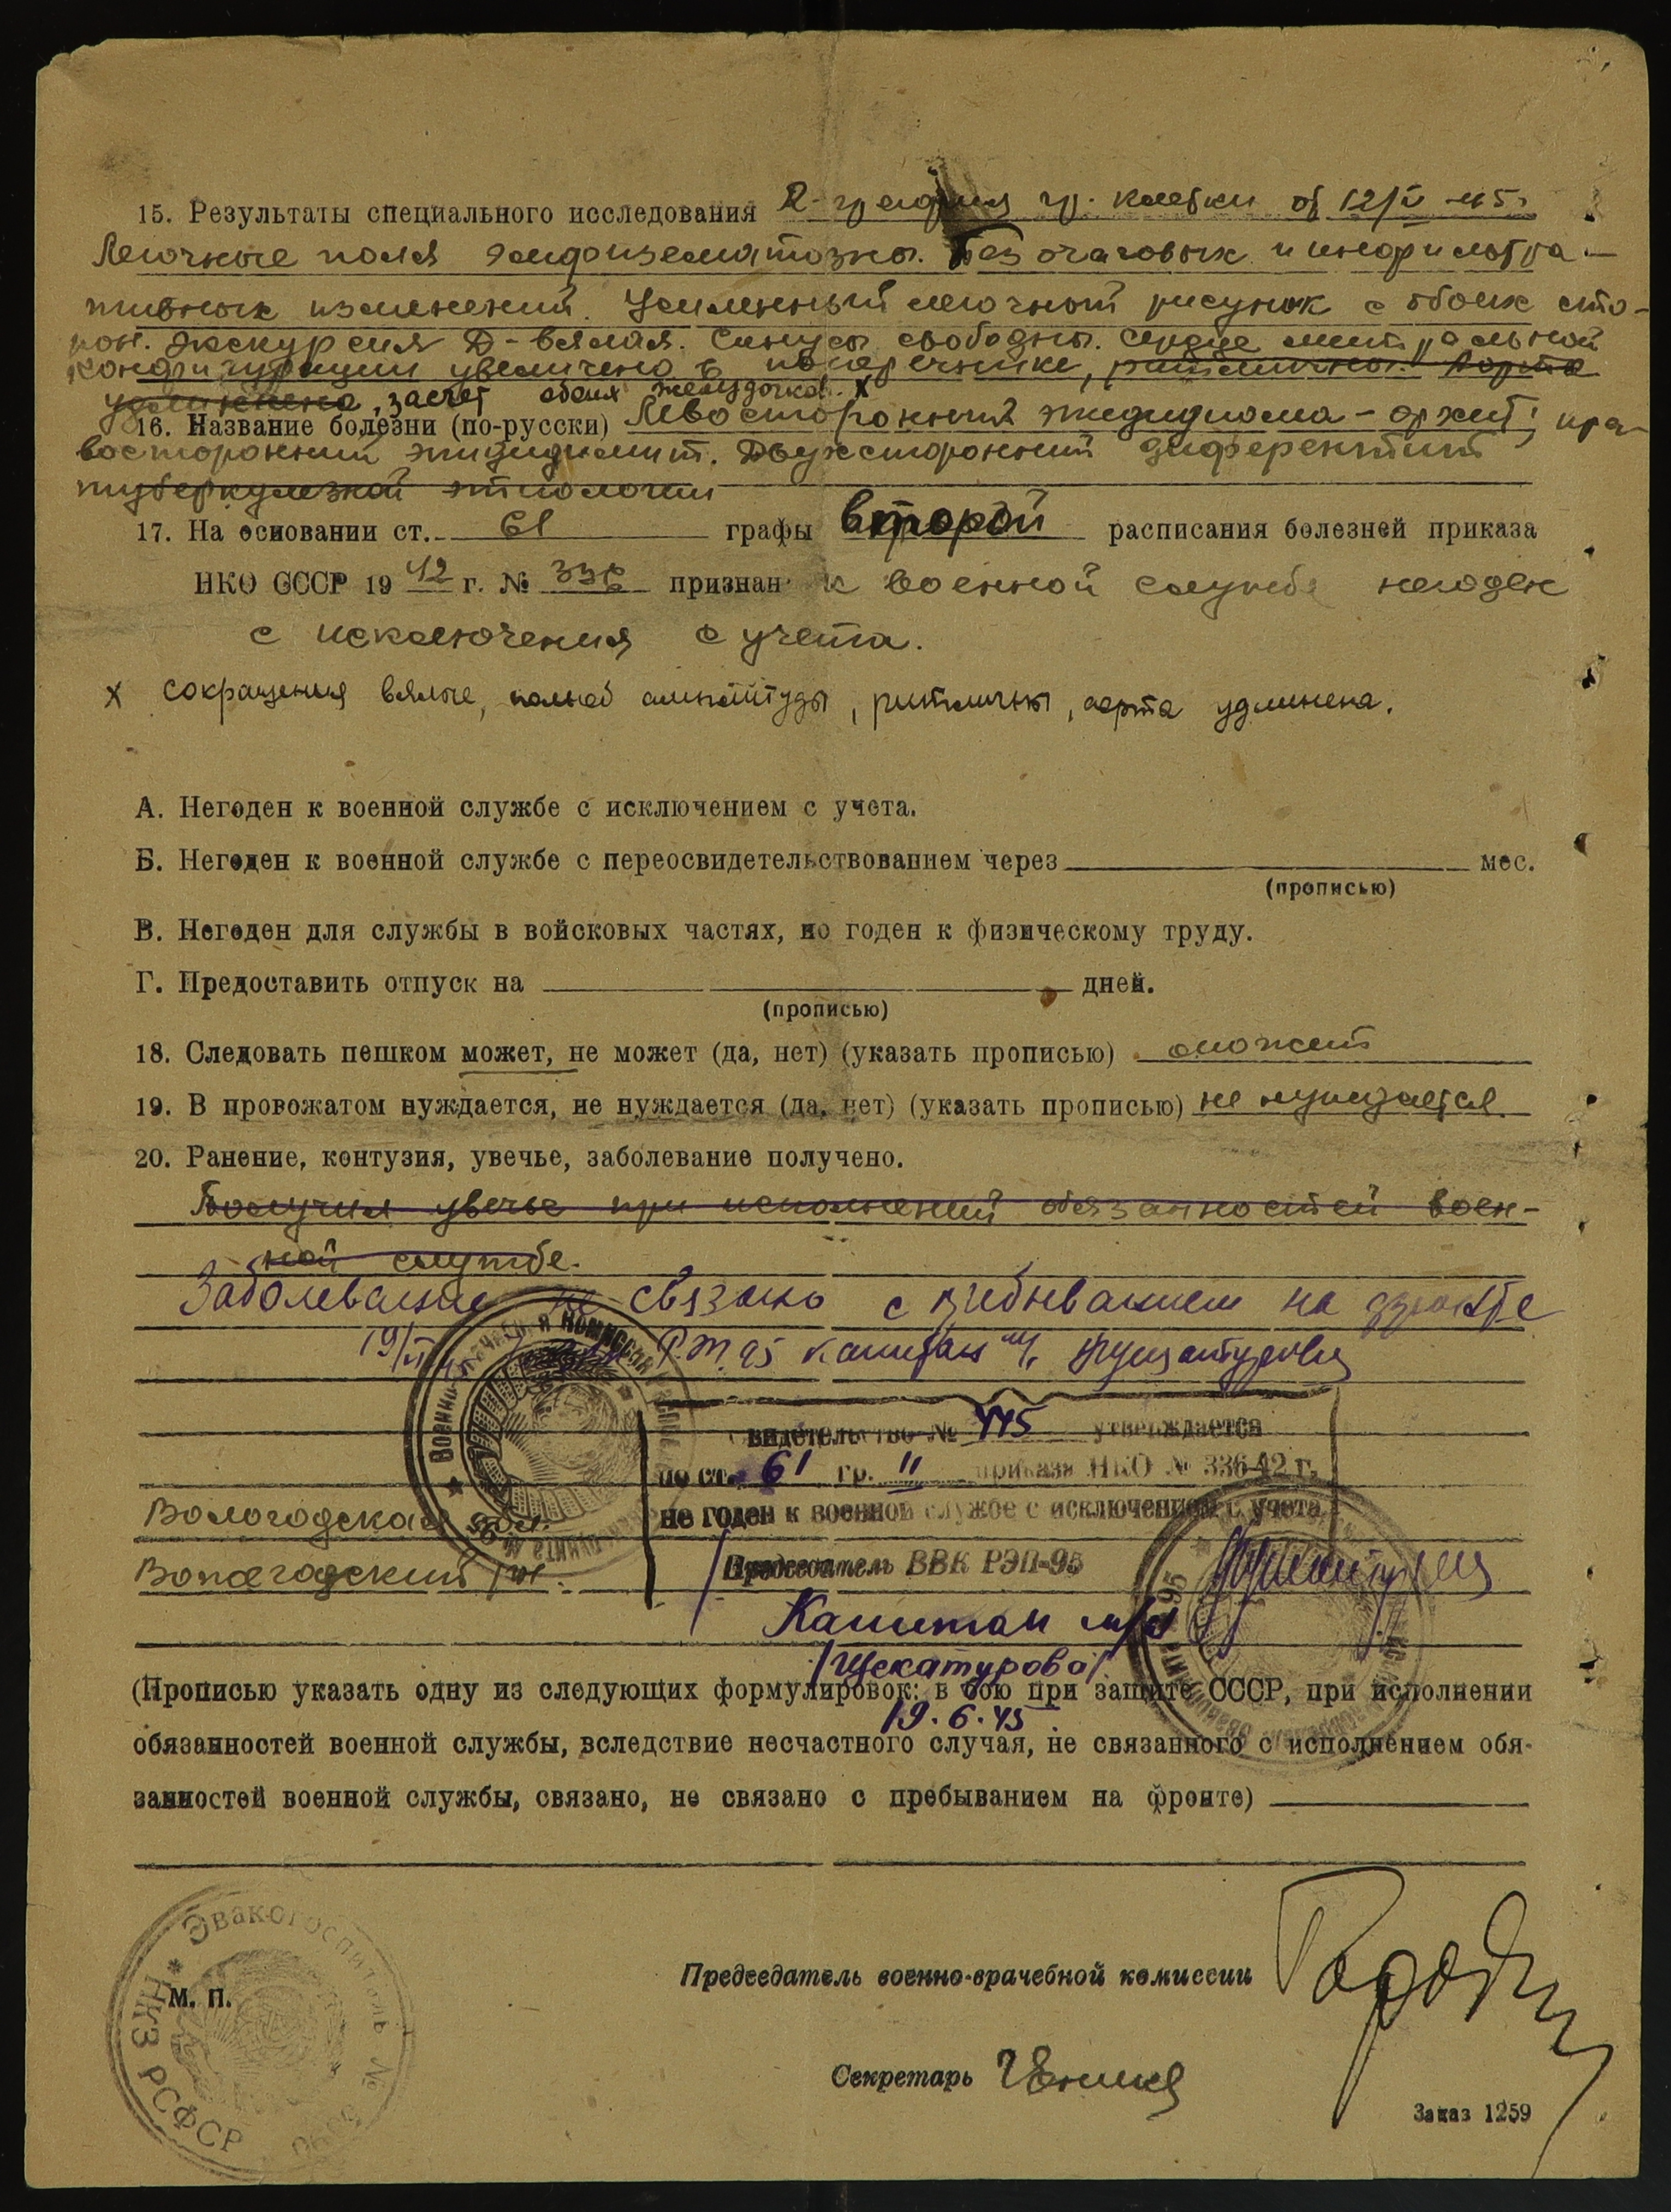 15. Результаты специального исследования R-графия гр. клетки от 12/V-45г.
Легочные поля эмфизематозны. Без очаговых и инфильтра-
тивных изменений. Усиленный легочный рисунок с обоих сто-
рон. Экскурсия Д-вялая. Синусы свободны. Сердце митральной
конфигурации увеличено в поперечнике, ритмичны. Аорта
удлинена, засчет обеих желудочков. х
16. Название болезни (по-русски) Левосторонний эпидидимо-орхит; пра-
восторонний эпидидимит. Двухсторонний диферентит
туберкулезной этиологии
17. На основании ст. 61 графы второй расписания болезней приказа
НКО СССР 1942 г. № 336 признан к военной службе негоден
с исключения с учета.
х сокращения вялые, полной амплитуды, ритмичны, аорта удлинена.
А. Негоден к военной службе с исключением с учета.
Б. Негоден к военной службе с переосвидетельствованием через мес.
(прописью)
В. Негоден для службы в войсковых частях, но годен к физическому труду.
Г. Предоставить отпуск на дней.
(прописью)
18. Следовать пешком может, не может (да, нет) (указать прописью) может
19. В провожатом нуждается, не нуждается (да, нет) (указать прописью) не нуждается
20. Ранение, контузия, увечье, заболевание получено.
Получил увечье при исполнений обязанностей воен-
ной службе.
Заболевание не связано с пребыванием на фронте
19/VI 45 капитан м/с
видетельство № 445 утверждается
по ст. 61 гр. II приказа НКО № 336-42 г.
не годен к военной службе с исключением с учета
Вологодская обл.
Вологодский
Председатель ВВК РЭП-95
Капитан м/с
/Щекатурова/
(Прописью указать одну из следующих формулировок: в бою при защите СССР, при исполнении
19.6.45
обязанностей военной службы, вследствие несчастного случая, не связанного с исполнением обя-
занностей военной службы, связано, не связано с пребыванием на фронте)
Эвакогоспиталь №
НКЗ РСФСР
М. П.
Председатель военно-врачебной комиссии
Секретарь
Заказ 1259